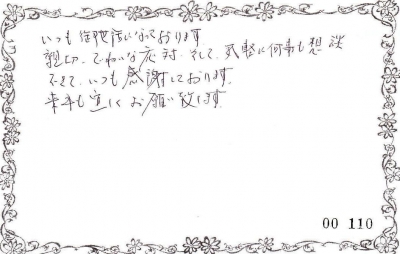 いつも御世話になっております。
親切、ていねいな応対、そして、気軽に何事も想談
できて、いつも感謝しております。
来年も宜しくお願い致します。
00 110